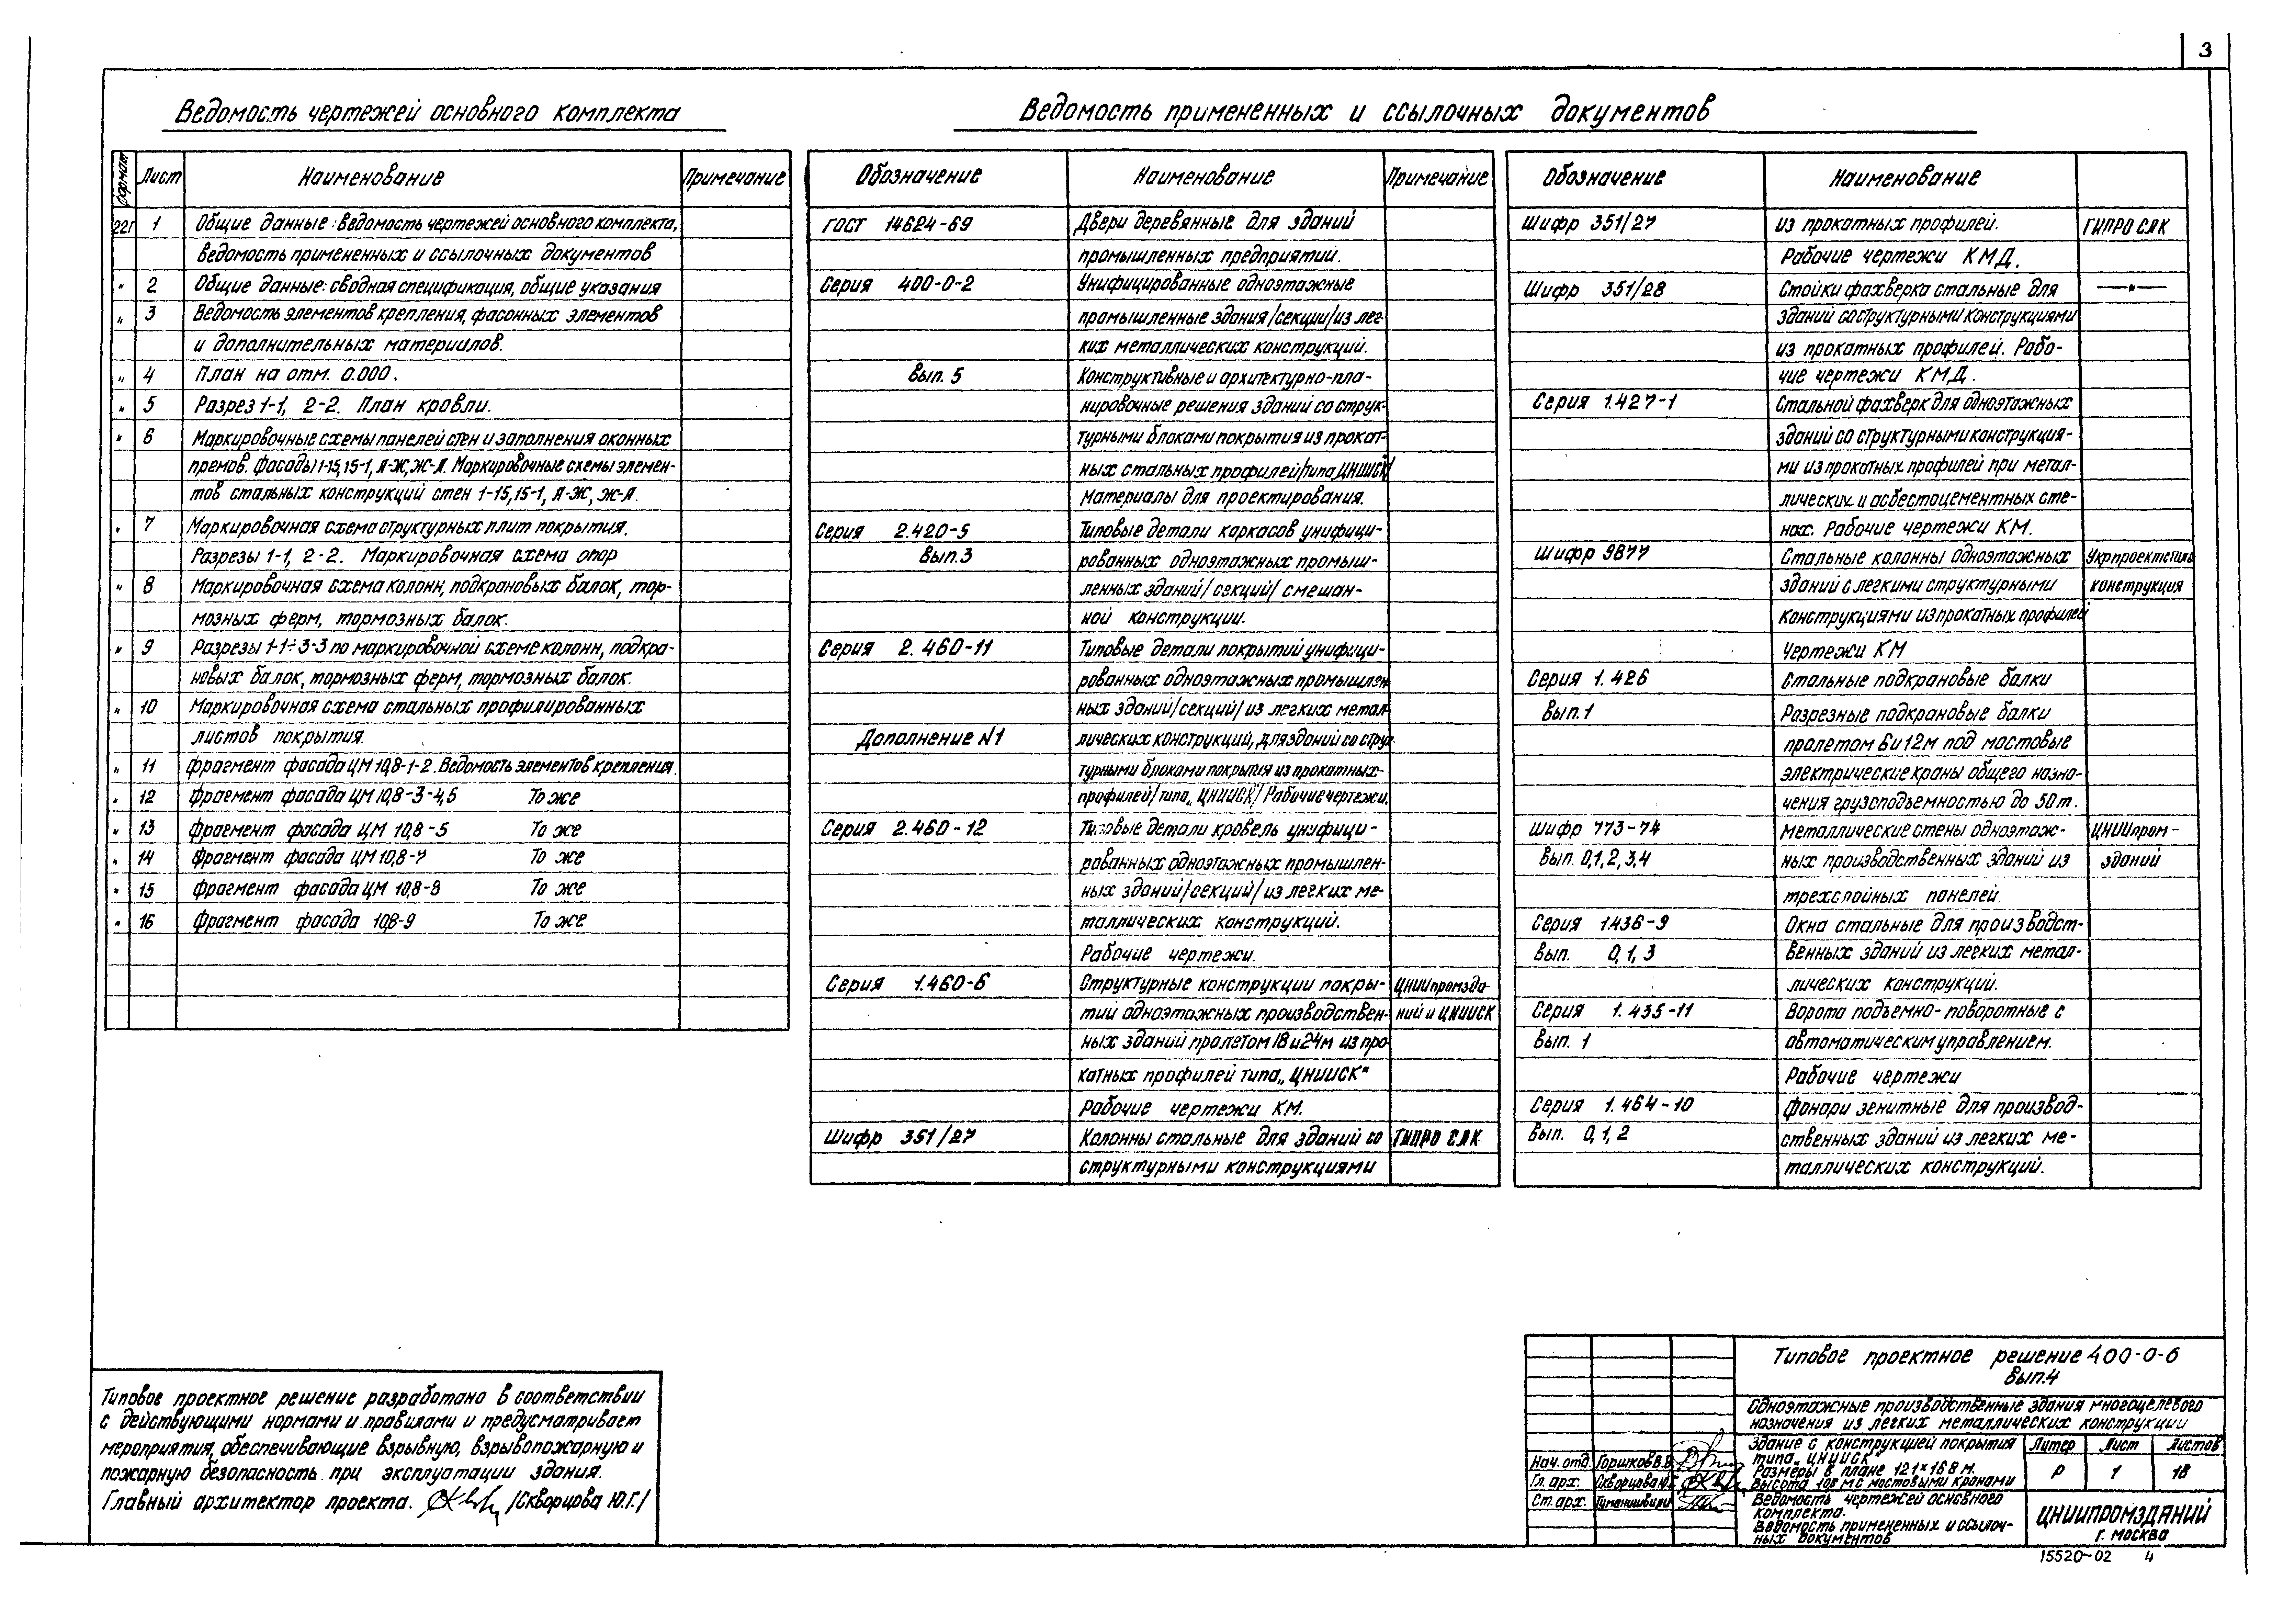 3
Ведомость чертежей основного комплекта
Формат Лист Наименование Примечание
22г 1 Общие данные: ведомость чертежей основного комплекта,
ведомость примененных и ссылочных документов
" 2 Общие данные: сводная спецификация, общие указания
" 3 Ведомость элементов крепления, фасонных элементов
и дополнительных материалов.
" 4 План на отм. 0.000.
" 5 Разрез 1-1, 2-2. План кровли.
" 6 Маркировочные схемы панелей стен и заполнения оконных
премов. Фасады 1-15, 15-1, А-Ж, Ж-А. Маркировочные схемы элемен-
тов стальных конструкций стен 1-15, 15-1, А-Ж, Ж-А.
" 7 Маркировочная схема структурных плит покрытия.
Разрезы 1-1, 2-2. Маркировочная схема опор
" 8 Маркировочная схема колонн, подкрановых балок, тор-
мозных ферм, тормозных балок.
" 9 Разрезы 1-1÷3-3 по маркировочной схеме колонн, подкра-
новых балок, тормозных ферм, тормозных балок.
" 10 Маркировочная схема стальных профилированных
листов покрытия.
" 11 Фрагмент фасада ЦМ 10,8-1-2. Ведомость элементов крепления.
" 12 Фрагмент фасада ЦМ 10,8-3-4,5 То же
" 13 Фрагмент фасада ЦМ 10,8-5 То же
" 14 Фрагмент фасада ЦМ 10,8-7 То же
" 15 Фрагмент фасада ЦМ 10,8-8 То же
" 16 Фрагмент фасада 108-9 То же
Ведомость примененных и ссылочных документов
Обозначение Наименование Примечание
ГОСТ 14624-69 Двери деревянные для зданий
промышленных предприятий.
Серия 400-0-2 Унифицированные одноэтажные
промышленные здания /секции/ из лег-
ких металлических конструкций.
Вып. 5 Конструктивные и архитектурно-пла-
нировочные решения зданий со струк-
турными блоками покрытия из прокат-
ных стальных профилей /типа ЦНИИСК/
Материалы для проектирования.
Серия 2.420-5 Типовые детали каркасов унифици-
Вып.3 рованных одноэтажных промыш-
ленных зданий /секций/ смешан-
ной конструкции.
Серия 2.460-11 Типовые детали покрытий унифици-
рованных одноэтажных промышлен
ных зданий /секций/ из легких метал
Дополнение N1 лических конструкций, для зданий со струк
турными блоками покрытия из прокатных-
профилей /типа „ЦНИИСК"/ Рабочие чертежи.
Серия 2.460-12 Типовые детали кровель унифици-
рованных одноэтажных промышлен-
ных зданий /секций/ из легких ме-
таллических конструкций.
Рабочие чертежи.
Серия 1.460-6 Структурные конструкции покры- ЦНИИпромзда-
тий одноэтажных производствен- ний и ЦНИИСК
ных зданий пролетом 18 и 24м из про
катных профилей типа „ЦНИИСК"
Рабочие чертежи КМ.
Шифр 351/27 Колонны стальные для зданий со ГИПРО СЛК
структурными конструкциями
Обозначение Наименование
Шифр 351/27 из прокатных профилей. ГИПРО СЛК
Рабочие чертежи КМД.
Шифр 351/28 Стойки фахверка стальные для —"—
зданий со структурными конструкциями
из прокатных профилей. Рабо-
чие чертежи КМД.
Серия 1.427-1 Стальной фахверк для одноэтажных
зданий со структурными конструкция-
ми из прокатных профилей при метал-
лических и асбестоцементных сте-
нах. Рабочие чертежи КМ.
Шифр 9877 Стальные колонны одноэтажных Укрпроектсталь
зданий с легкими структурными конструкция
конструкциями из прокатных профилей
Чертежи КМ
Серия 1.426 Стальные подкрановые балки
Вып.1 Разрезные подкрановые балки
пролетом 6 и 12м под мостовые
электрические краны общего назна-
чения грузоподъемностью до 50т.
Шифр 773-74 Металлические стены одноэтаж- ЦНИИпром-
Вып. 0,1,2,3,4 ных производственных зданий из зданий
трехслойных панелей.
Серия 1.436-9 Окна стальные для производст-
Вып. 0,1,3 венных зданий из легких метал-
лических конструкций.
Серия 1.435-11 Ворота подъемно-поворотные с
Вып. 1 автоматическим управлением.
Рабочие чертежи
Серия 1.464-10 Фонари зенитные для производ-
Вып. 0,1,2 ственных зданий из легких ме-
таллических конструкций.
Типовое проектное решение разработано в соответствии
с действующими нормами и правилами и предусматривает
мероприятия, обеспечивающие взрывную, взрывопожарную и
пожарную безопасность при эксплуатации здания.
Главный архитектор проекта. /Скворцова Ю.Г./
Типовое проектное решение 400-0-6
Вып.4
Одноэтажные производственные здания многоцелевого
назначения из легких металлических конструкций
Здание с конструкцией покрытия
типа „ЦНИИСК"
Размеры в плане 121×168 м.
Высота 108 м с мостовыми кранами
Литер Лист Листов
Р 1 18
Нач. отд. Горшков В.В.
Гл. арх. Скворцова Ю.Г.
Ст. арх. Туманишвили
Ведомость чертежей основного
комплекта.
Ведомость примененных и ссылоч-
ных документов
ЦНИИПРОМЗДАНИЙ
г. Москва
15520-02 4